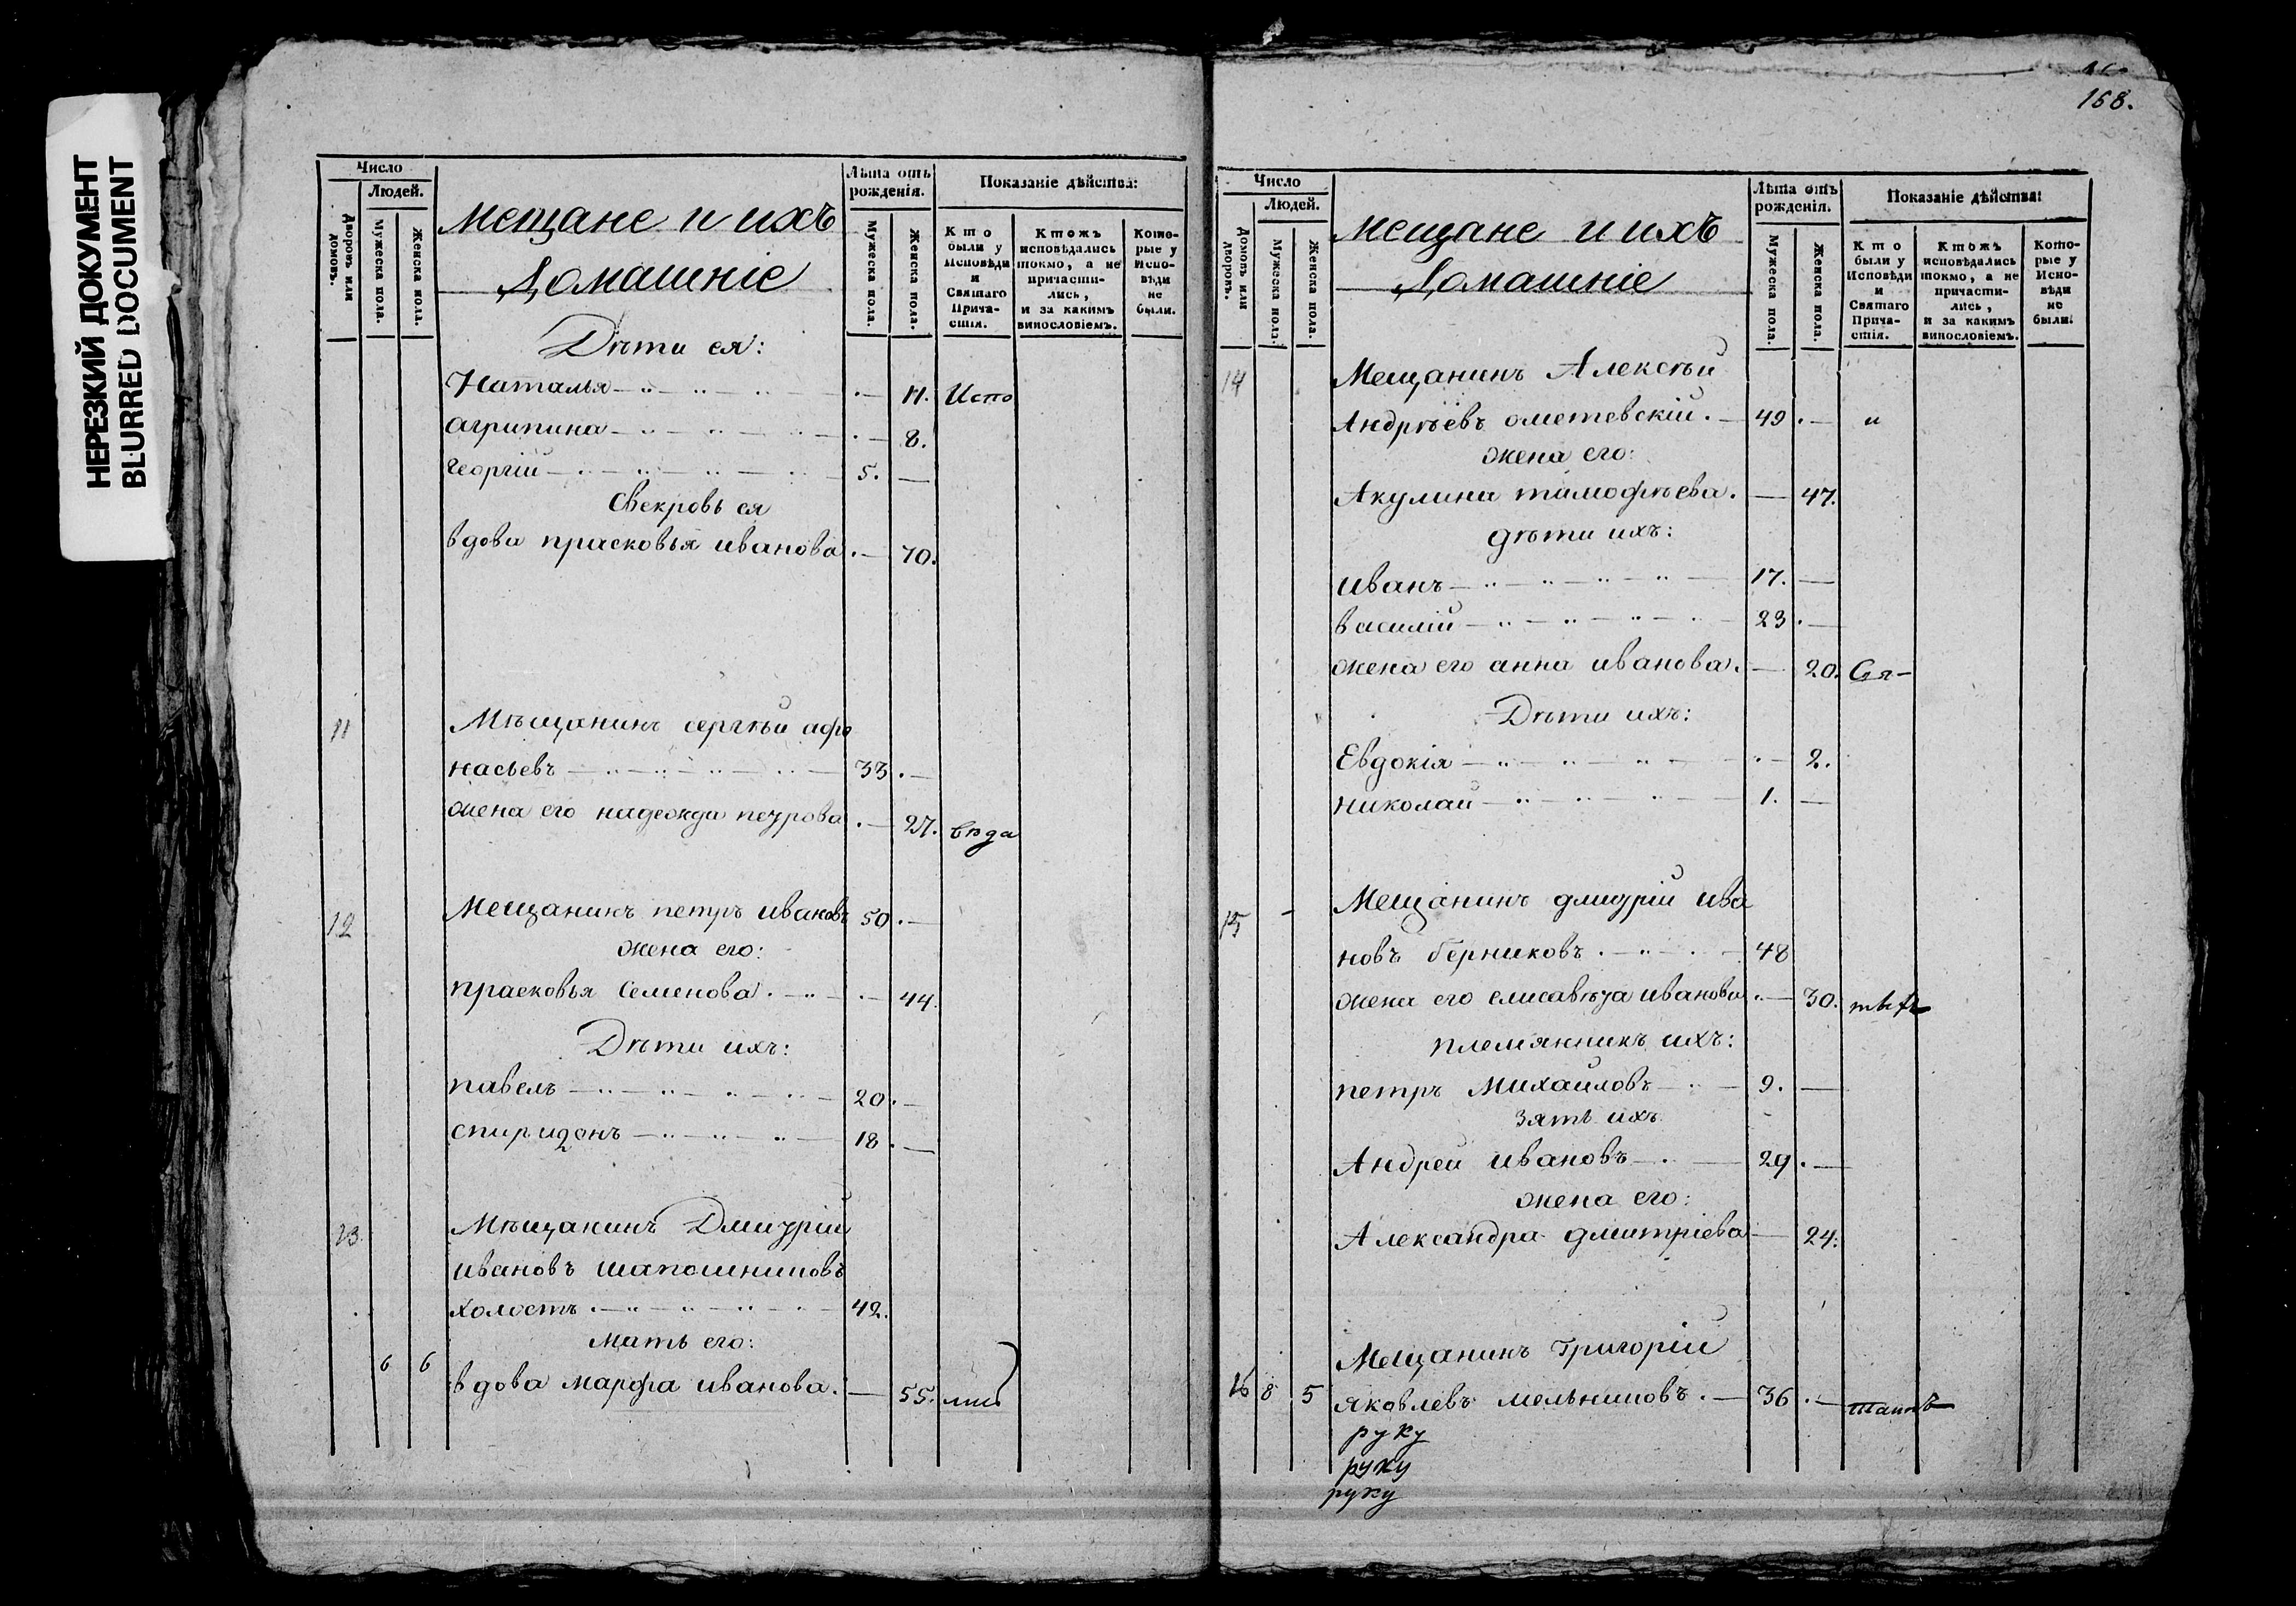 НЕРЕЗКИЙ ДОКУМЕНТ
BLURRED DOCUMENT
Число
Людей.
Дворовъ или домовъ.
Мужеска пола.
Женска пола.
Мещане и ихъ
Домашніе
Лѣта отъ рожденія.
Мужеска пола.
Женска пола.
Показаніе дѣйства:
Кто были у Исповѣди и Святаго Причастія.
Ктожъ исповѣдались токмо, а не причастились, и за какимъ винословіемъ.
Которые у Исповѣди не были.
Дѣти ея:
Наталья 11. Испо
агрипина 8.
георгій 5.
Свекровь ея
вдова прасковья иванова 70.
11 Мѣщанинъ сергѣй афа
насьевъ 33
жена его надежда петрова 27. вѣда
12 Мещанинъ петръ ивановъ 50
жена его:
прасковья Семенова 44.
Дѣти ихъ:
павелъ 20
спиридонъ 18
13. Мѣщанинъ Дмитрій
ивановъ шапошниковъ
холостъ 42.
мать его:
6 6 вдова марфа иванова 55. лись
158.
Число
Людей.
Домовъ или дворовъ.
Мужеска пола.
Женска пола.
Мещане и ихъ
Домашніе
Лѣта отъ рожденія.
Мужеска пола.
Женска пола.
Показаніе дѣйства:
Кто были у Исповѣди и Святаго Причастія.
Ктожъ исповѣдались токмо, а не причастились, и за какимъ винословіемъ.
Которые у Исповѣди не были.
14 Мещанинъ Алексѣй
Андрѣевъ ометевскій 49 и
жена его:
Акулина тимофѣева 47.
дѣти ихъ:
иванъ 17.
василій 23
жена его анна иванова 20. Свя-
Дѣти ихъ:
Евдокія 2.
николай 1.
15 Мещанинъ дмитрій ива
новъ берниковъ 48
жена его елисавѣта иванова 30.
племянникъ ихъ:
петръ Михайловъ 9.
зять ихъ
Андрей ивановъ 29
жена его:
Александра дмитріева 24.
Мещанинъ григорій
16 8 5 яковлевъ мельниковъ 36
руку
руку
руку